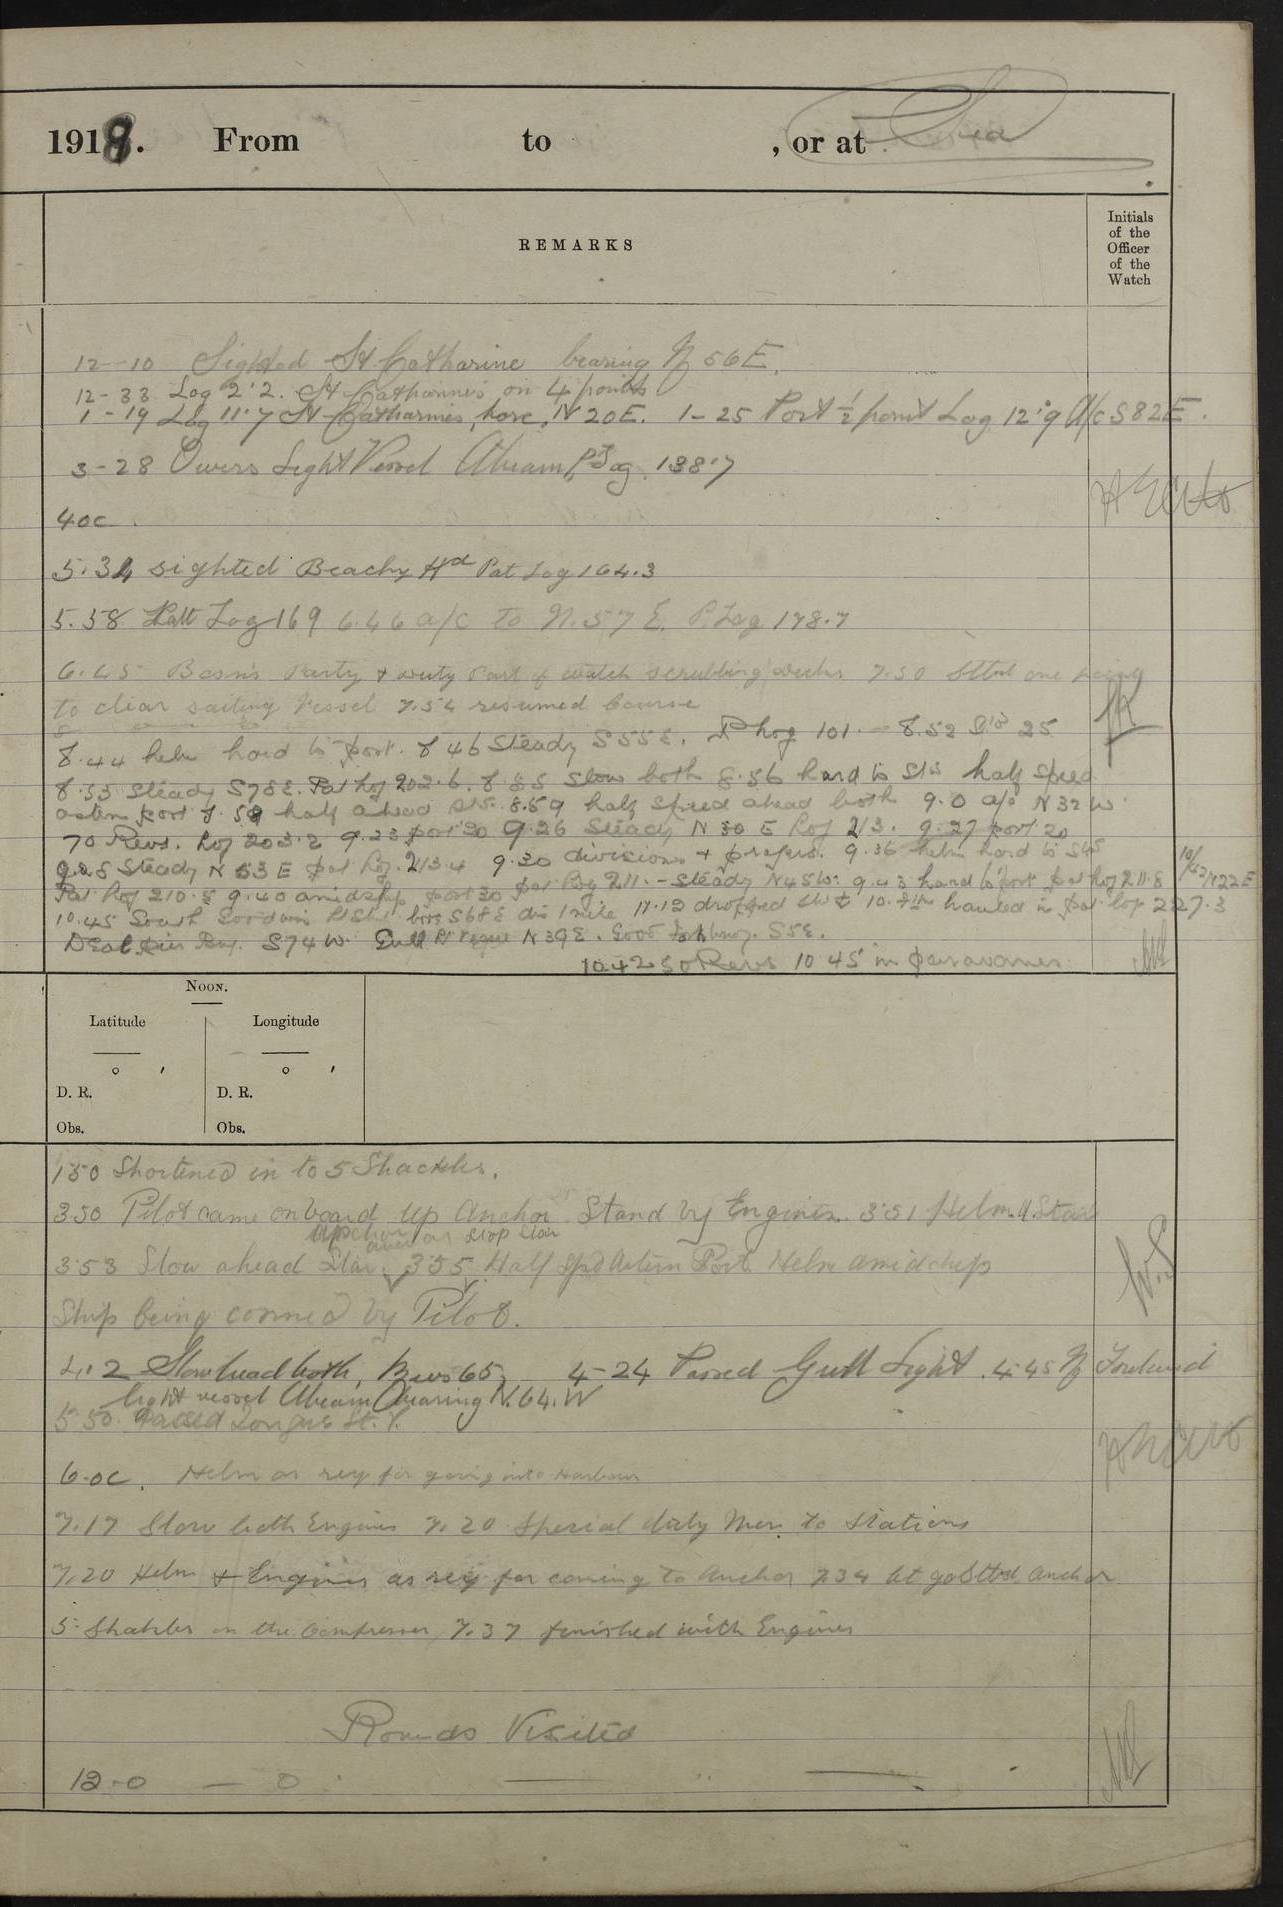 1919. From to , or at Sea
REMARKS
Initials
of the
Officer
of the
Watch
12-10 Sighted St Catharine bearing N 56 E.
12-33 Log 2.2. St Catharines on 4 points
1-19 Log 11.7 St Catharines bore N 20 E. 1-25 Port ½ point Log 12.9 A/c S 82 E.
3-28 Owers Light Vessel Abeam, Pt Log 138.7
4 oc.
5.34 sighted Beachy Hd Pat Log 164.3
5.58 Patt Log 169 6.46 a/c to N. 57 E. P. Log 178.7
6.45 Bosn's Party & duty Part of watch scrubbing decks 7.50 Altd one
to clear sailing Vessel 7.54 resumed Course
8.44 helm hard to port. 8 46 Steady S 55 E. P Log 101. - 8.52 25
8.53 Steady S 78 E. Pat Log 202.6. 8.55 Slow both 8.56 hard to Stb half speed
astern port 8.58 half ahead 8.59 half speed ahead both 9.0 a/c N 32 W.
70 Revs. Log 203.2 9.23 port 20 9.26 Steady N 30 E Log 213. 9.27 port 20
9.28 Steady N 53 E pat Log. 213.4 9.30 divisions & prayers. 9.36 helm hard to Stb
Pat Log 210.5 9.40 amidship port 30 pat Log 211. - Steady N 45 W. 9.43 hard to port pat Log 211.8 N 22 E
10.45 South Goodwin Lt Shl bore S 68 E dis 1 mile 11.12 dropped hauled in pat log 227.3
Deal pier Brg. S 74 W. Gull Lt Vessel N 39 E. Good S 5 E.
10.42 50 Revs 10 45 in paravanes
NOON.
Latitude Longitude
° ′ ° ′
D. R. D. R.
Obs. Obs.
1.50 Shortened in to 5 Shackles.
3.50 Pilot came on board Up Anchor Stand by Engines. 3.51 Helm Star
3.53 Slow ahead Star. 3.55 Half Spd Astern Port. Helm amidships
Ship being conned by Pilot.
4.12 Slow head both, Revs 65, 4-24 Passed Gull Light. 4.45 N Foreland
light vessel Abeam bearing N. 64. W
5 50. Passed Tongue Lt. V.
6.oc. Helm as req for going into Harbour
7.17 Slow both Engines 7.20 Special duty Men to Stations
7.20 Helm & Engines as req for coming to Anchor 7.34 let go Stbd Anchor
5 Shakles on the Compressor 7.37 finished with Engines
Rounds Visited
12-0